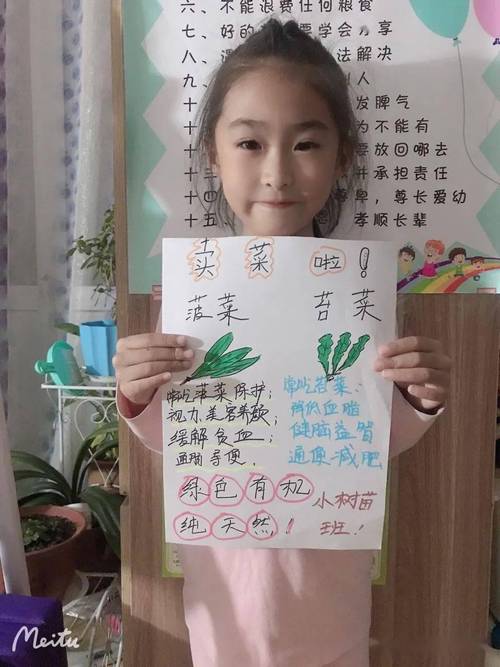 六、不能浪费任何粮食
七、好的 要学会分享
八、 法解决
九、 别人
十 发脾气
十 为不能有
十 要放回哪去
十三 并承担责任
十四 尊卑，尊长爱幼
十五 孝顺长辈
卖菜啦！
菠菜 苔菜
常吃菠菜保护
视力,美容养颜;
缓解贫血;
通肠导便.
常吃苔菜.
降低血脂
健脑益智
通便减肥
绿色有机
纯天然,!
小树苗
班!
Meitu